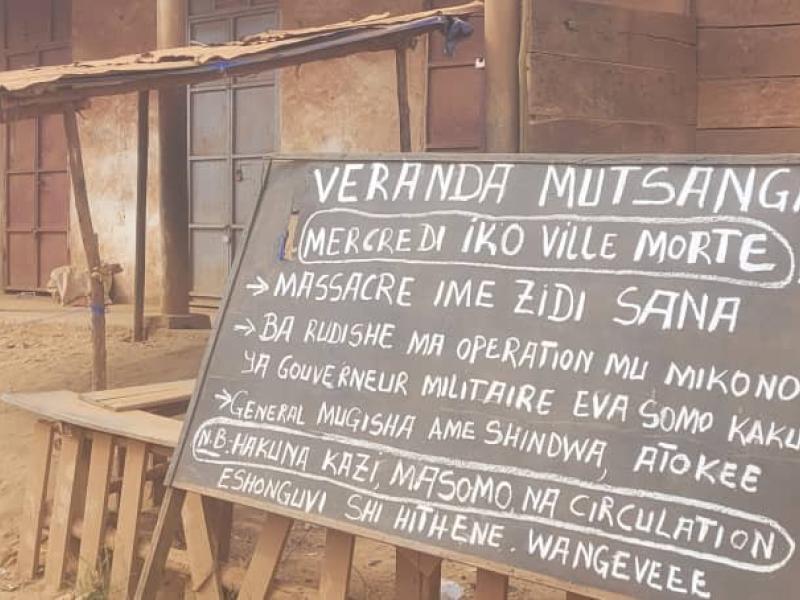 VERANDA MUTSANGA
MERCREDI IKO VILLE MORTE
→ MASSACRE IME ZIDI SANA
→ BA RUDISHE MA OPERATION MU MIKONO
YA GOUVERNEUR MILITAIRE EVA SOMO KAKU
→ GENERAL MUGISHA AME SHINDWA, ATOKEE
N.B: HAKUNA KAZI, MASOMO NA CIRCULATION
ESHONGUVI SHI HITHENE. WANGEVEEE